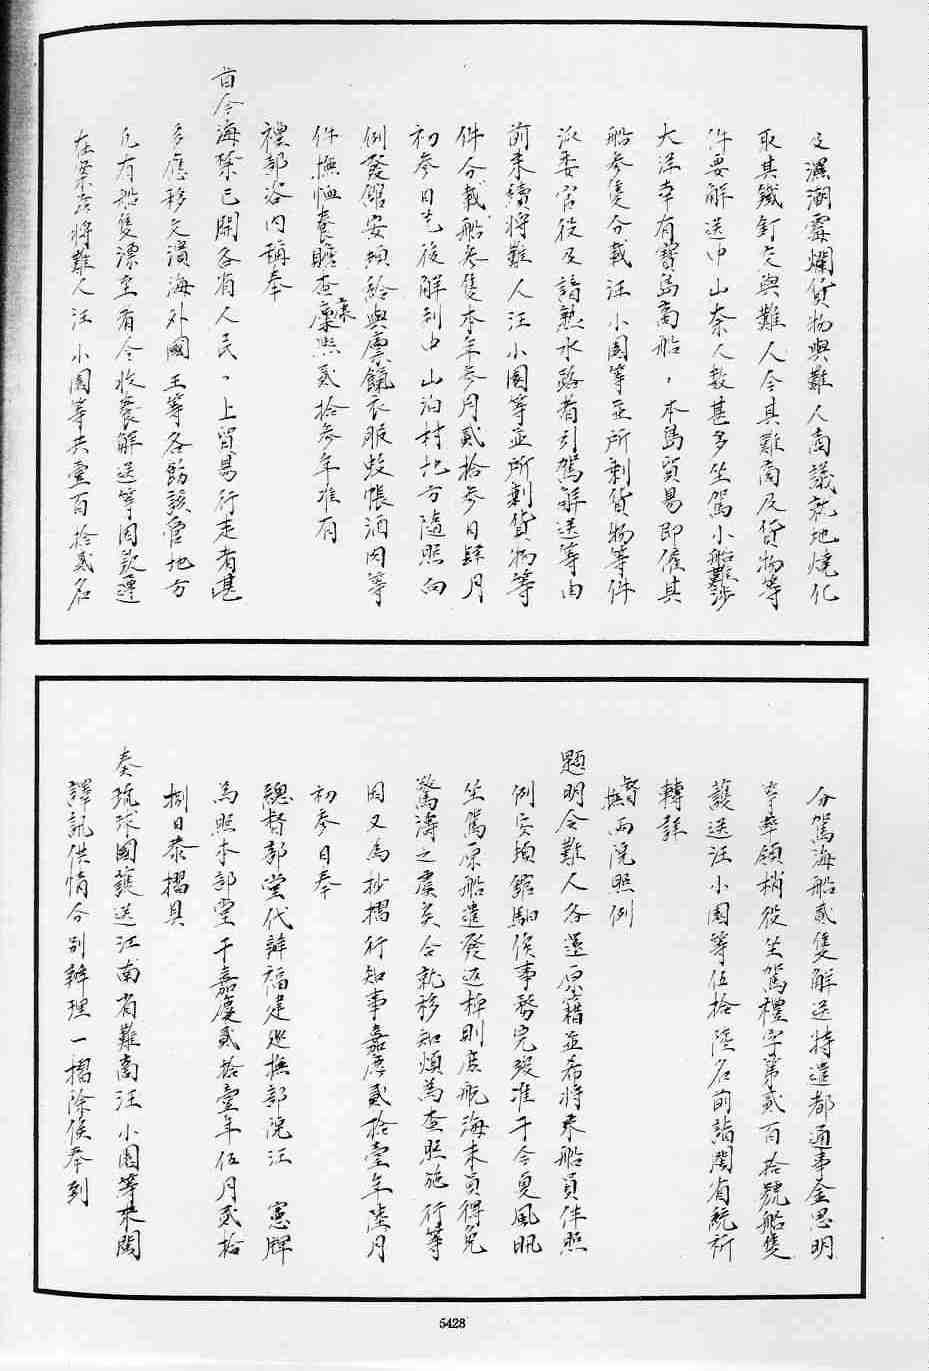 及濕潮霉爛貨物與難人商議就地燒化
取其鐵釘交與難人令其難商及貨物等
件要解送中山奈人數甚多坐駕小船難涉
大洋幸有寶島商船，本島貿易即僱其
船參隻分載汪小園等並所剩貨物等件
派委官役及諳熟水路者引駕解送等由
前來續將難人汪小園等並所剩貨物等
件分載船參隻本年參月貳拾參日肆月
初參日先後解到中山泊村地方隨照向
例發館安頓給與廩餼衣服蚊帳酒肉等
件撫恤養贍查康熙貳拾參年准有
禮部咨內稱奉
旨今海禁已開各省人民、上貿易行走者甚
多應移文濱海外國王等各飭該管地方
凡有船隻漂至者令收養解送等因欽遵
在案茲將難人汪小園等共壹百拾貳名
分駕海船貳隻解送特遣都通事金思明
等率領梢役坐駕禮字第貳百拾號船隻
護送汪小園等伍拾陸名前詣閩省統祈
轉詳
督撫兩院照例
題明令難人各還原籍並希將來船員伴照
例安頓館驛俟事務完竣准于今夏風汛
坐駕原船遣發返棹則庶航海末員得免
驚濤之虞矣合就移知煩為查照施行等
因又為抄摺行知事嘉慶貳拾壹年陸月
初參日奉
總督部堂代辦福建巡撫部院汪　憲牌
為照本部堂于嘉慶貳拾壹年伍月貳拾
捌日恭摺具
奏琉球國護送江南省難商汪小園等來閩
譯訊供情分別辦理一摺除俟奉到
5428